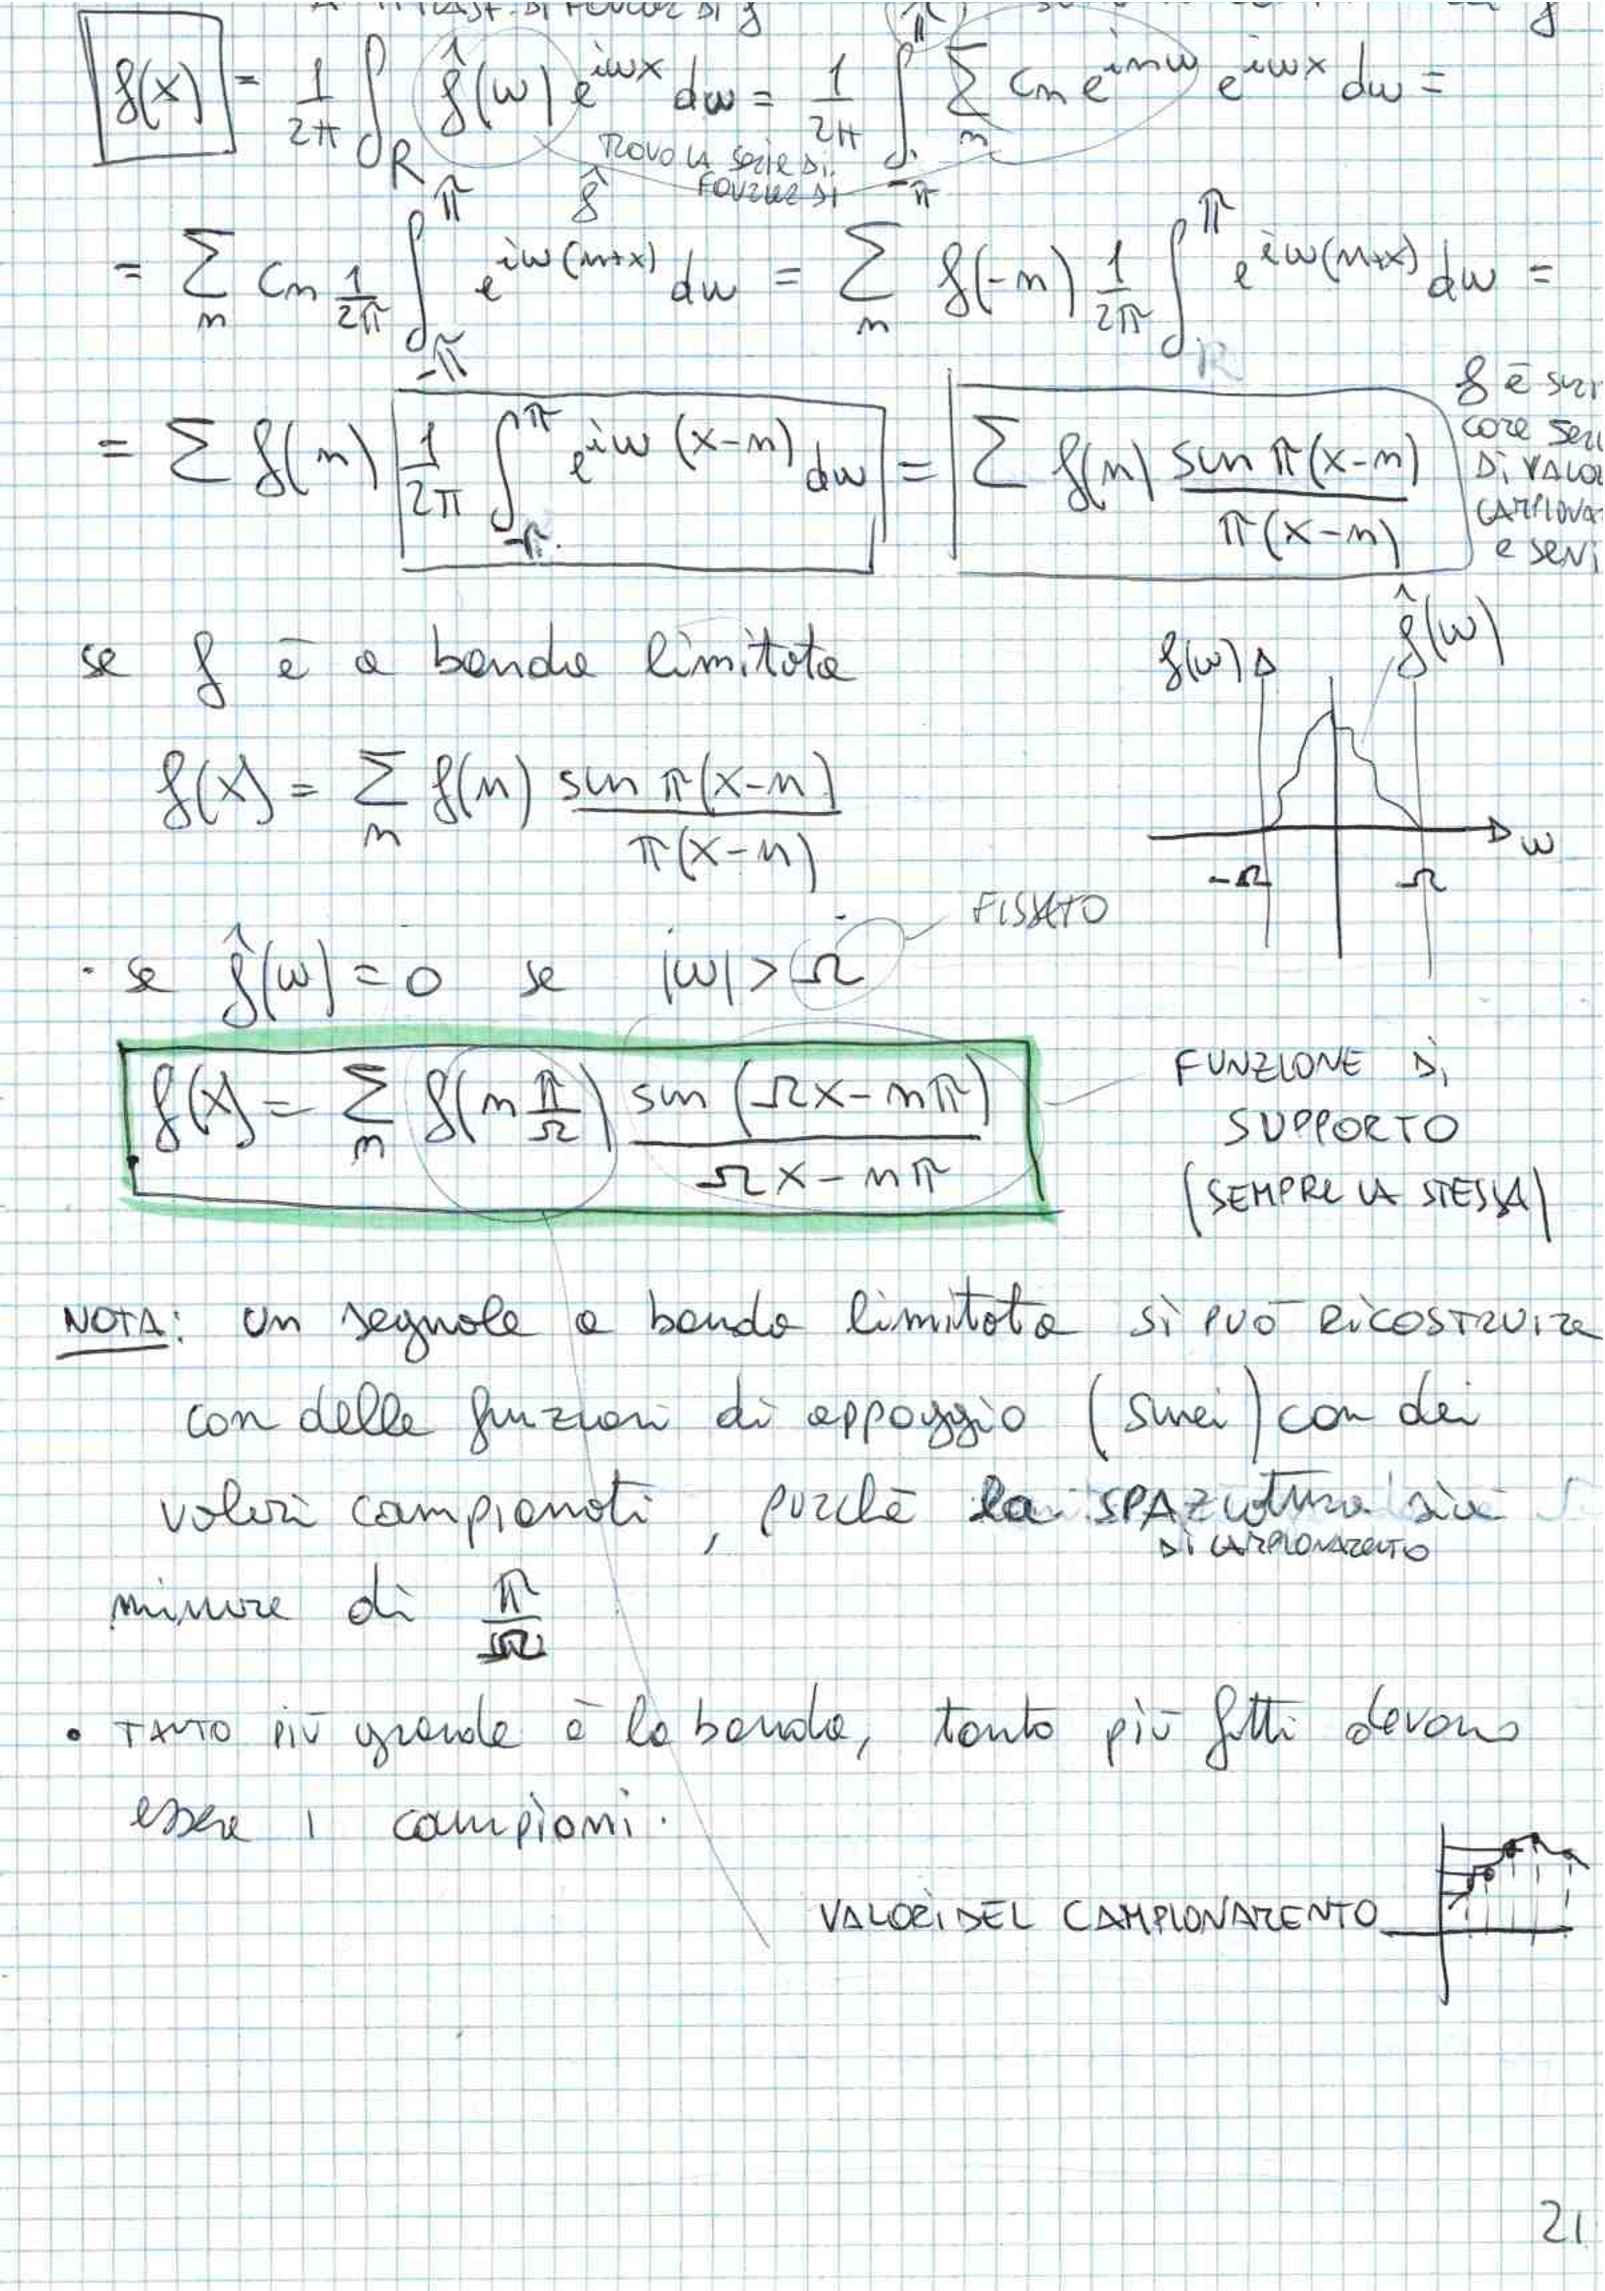 f(x) = 1/2π ∫_R f̂(ω) e^{iωx} dω = 1/2π ∫_{-π}^{π} Σ_n c_n e^{inω} e^{iωx} dω =
TROVO LA SERIE DI
FOURIER DI f̂
= Σ_n c_n 1/2π ∫_{-π}^{π} e^{iω(n+x)} dω = Σ_n f(-n) 1/2π ∫^{π} e^{iω(n+x)} dω =
= Σ f(n) 1/2π ∫_{-π}^{π} e^{iω(x-n)} dω = Σ f(n) sin π(x-n) / π(x-n)
f è
DI
e
se f è a banda limitata
f(ω) f̂(ω)
f(x) = Σ_n f(n) sin π(x-n) / π(x-n)
-Ω Ω ω
FISSATO
· se f̂(ω) = 0 se |ω| > Ω
f(x) = Σ_n f(n π/Ω) sin (Ωx - nπ) / Ωx - nπ
FUNZIONE DI
SUPPORTO
(SEMPRE LA STESSA)
NOTA: un segnale a banda limitata SI PUÒ RICOSTRUIRE
con delle funzioni di appoggio (sinci) con dei
valori campionati, purchè la SPAZIatura sia
DI CAMPIONAMENTO
minore di π/Ω
• TANTO PIÙ grande è la banda, tanto più fitti devono
essere i campioni.
VALORI DEL CAMPIONAMENTO
21